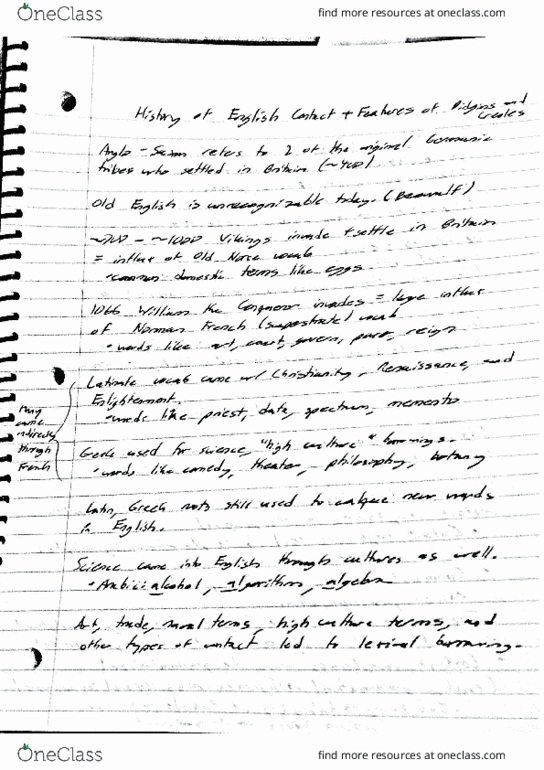 OneClass
find more resources at oneclass.com
History of English Contact + Features of Pidgins and
Creoles
Anglo-Saxon refers to 2 of the original Germanic
tribes who settled in Britain (~400)
Old English is unrecognizable today. (Beowulf)
~700 - ~1000 Vikings invade + settle in Britain
= influx of Old Norse vocab
• common domestic terms like eggs
1066 William the Conqueror invades = large influx
of Norman French (superstrate) vocab
• words like art, court, govern, reign
Latinate vocab came w/ Christianity, Renaissance, and
Enlightenment.
• words like priest, data, spectrum, memento
Many
came
indirectly
through
French
Greek used for science, "high culture" borrowings.
• words like comedy, theater, philosophy, botany
Latin, Greek roots still used to calque new words
in English.
Science came into English through cultures as well.
• Arabic: alcohol, algorithm, algebra
Art, trade, naval terms, high culture terms, and
other types of contact led to lexical borrowing.
OneClass
find more resources at oneclass.com